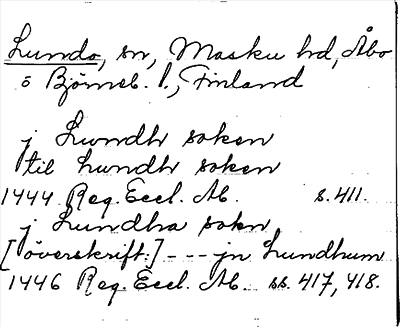 Lundo, sn, Masku hd, Åbo
o Björneb. l., Finland
j Lundh soken
til hundh soken
1444 Reg. Eccl. Ab. s. 411.
j Lundha sokn
[överskrift:] --- jn Lundhum
1446 Reg. Eccl. Ab. ss. 417, 418.